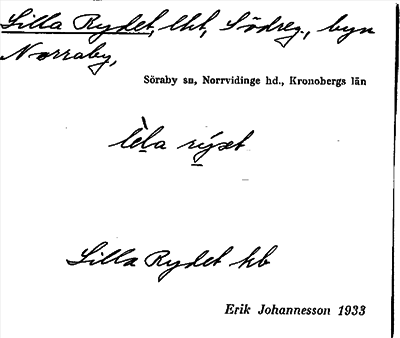 Lilla Rydet, lht, Södreg., byn
Norraby,
Söraby sn, Norrvidinge hd., Kronobergs län
lèla rýət
Lilla Rydet kb
Erik Johannesson 1933